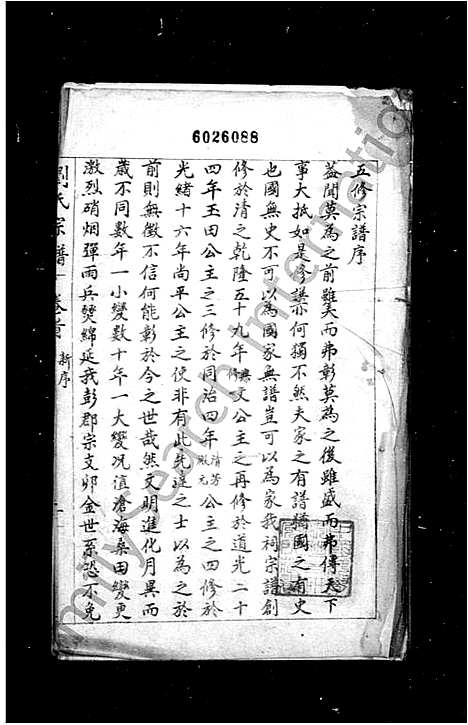 6026088
五修宗譜序
蓋聞莫為之前雖美而弗彰莫為之後雖盛而弗傳天下
事大抵如是修譜亦何獨不然夫家之有譜猶國之有史
也國無史不可以為國家無譜豈可以為家我祠宗譜創
修於清之乾隆五十九年 修文公主之再修於道光二十
四年玉田公主之三修於同治四年清芳 元公主之四修於
光緒十六年尚平公主之使非有此先達之士以為之於
前則無徵不信何能彰於今之世哉然文明進化月異而
歲不同數年一小變數十年一大變況值滄海桑田變更
激烈硝烟彈雨兵燹綿延我彭郡宗支卯金世系恐不免
劉氏宗譜 卷首 新序
FamilySearch International